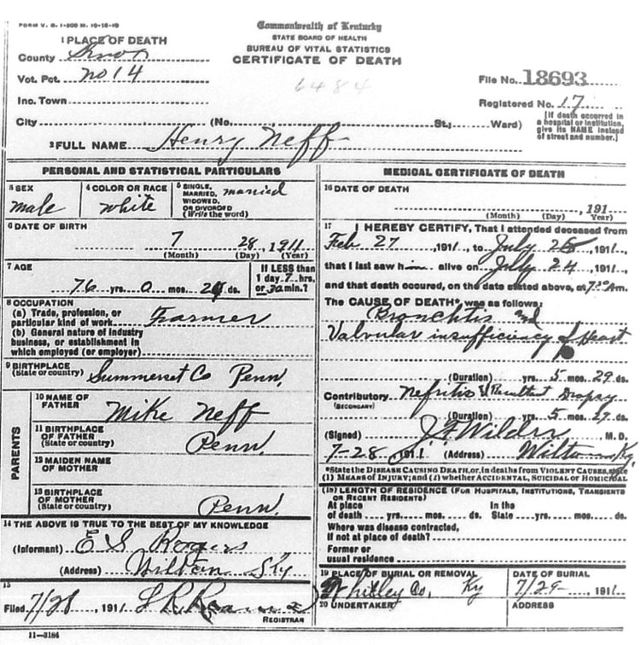 FORM V. S. 1-200 M. 10-16-10
Commonwealth of Kentucky
STATE BOARD OF HEALTH
BUREAU OF VITAL STATISTICS
CERTIFICATE OF DEATH
1 PLACE OF DEATH
County Knox
Vot. Pct. No 14
6484
File No. 18693
Inc. Town
Registered No. 17
City (No. St.; Ward)
[If death occurred in a hospital or institution, give its NAME instead of street and number.]
2 FULL NAME Henry Neff
PERSONAL AND STATISTICAL PARTICULARS
3 SEX
male
4 COLOR OR RACE
white
5 SINGLE, MARRIED, WIDOWED, OR DIVORCED (Write the word)
married
6 DATE OF BIRTH
7 28, 1911
(Month) (Day) (Year)
7 AGE
76 yrs. 0 mos. ds.
If LESS than 1 day, 7 hrs. or 30 min.?
8 OCCUPATION
(a) Trade, profession, or particular kind of work Farmer
(b) General nature of industry business, or establishment in which employed (or employer)
9 BIRTHPLACE
(State or country) Summerset Co Penn.
PARENTS
10 NAME OF FATHER Mike Neff
11 BIRTHPLACE OF FATHER (State or country) Penn.
12 MAIDEN NAME OF MOTHER
13 BIRTHPLACE OF MOTHER (State or country) Penn.
14 THE ABOVE IS TRUE TO THE BEST OF MY KNOWLEDGE
(Informant) E S Rogers
(Address) Wilton Ky
15
Filed 7/28, 1911
REGISTRAR
11-3184
MEDICAL CERTIFICATE OF DEATH
16 DATE OF DEATH
191
(Month) (Day) (Year)
17 I HEREBY CERTIFY, That I attended deceased from
Feb 27, 1911, to July, 1911,
that I last saw him alive on July 24, 1911,
and that death occured, on the date stated above, at 7:30 Am.
The CAUSE OF DEATH* was as follows:
Bronchitis and
Valvular insufficiency of Heart
(Duration) yrs. 5 mos. 29 ds.
Contributory Nefritis & Resultant Dropsy
(SECONDARY)
(Duration) yrs. 5 mos. 29 ds.
(Signed) J F Wilder M. D.
7-28, 1911 (Address) Wilton Ky
*State the DISEASE CAUSING DEATH, or, in deaths from VIOLENT CAUSES, state
(1) MEANS OF INJURY; and (2) whether ACCIDENTAL, SUICIDAL or HOMICIDAL
(18) LENGTH OF RESIDENCE (FOR HOSPITALS, INSTITUTIONS, TRANSIENTS OR RECENT RESIDENTS)
At place of death yrs. mos. ds. In the State yrs. mos. ds.
Where was disease contracted,
If not at place of death?
Former or
usual residence
19 PLACE OF BURIAL OR REMOVAL
Whitley Co, Ky
DATE OF BURIAL
7/29, 1911
20 UNDERTAKER
ADDRESS